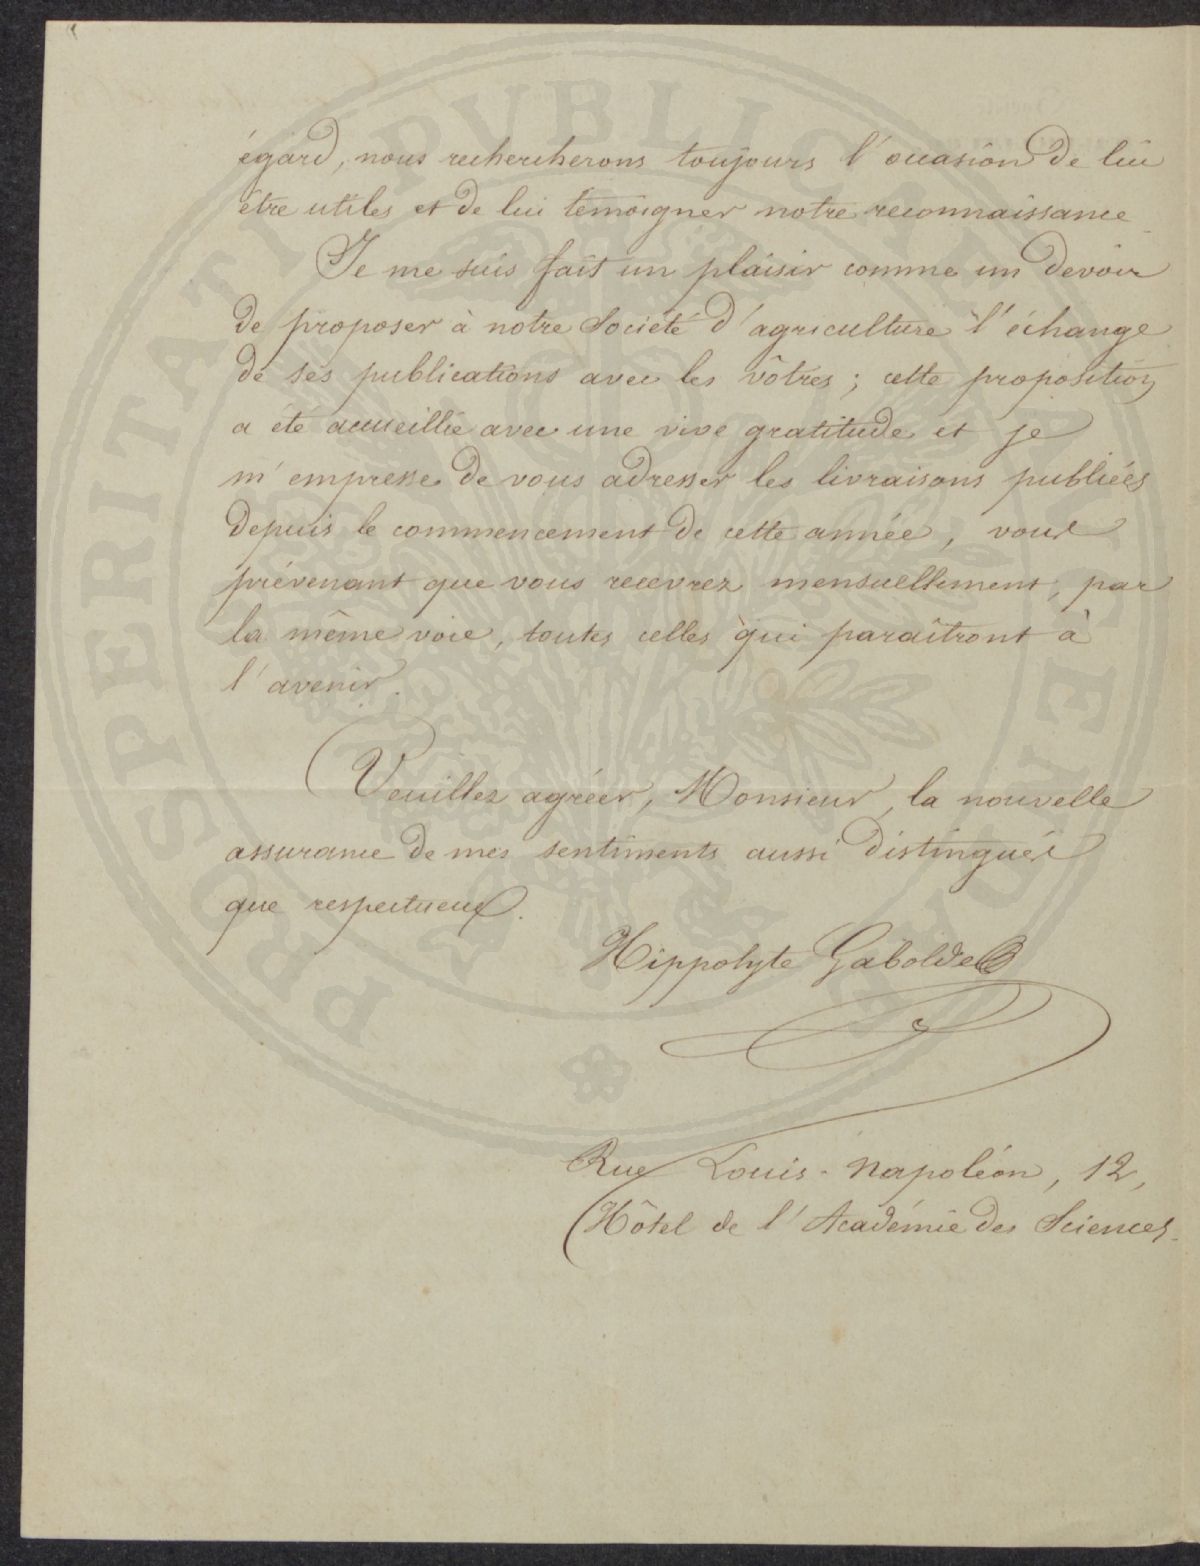 égard, nous rechercherons toujours l'occasion de lui
être utiles et de lui témoigner notre reconnaissance.
Je me suis fait un plaisir comme un devoir
de proposer à notre Société d'agriculture l'échange
de ses publications avec les vôtres ; cette proposition
a été accueillie avec une vive gratitude et je
m'empresse de vous adresser les livraisons publiées
depuis le commencement de cette année, vous
prévenant que vous recevrez mensuellement, par
la même voie, toutes celles qui paraîtront à
l'avenir.
Veuillez agréer, Monsieur, la nouvelle
assurance de mes sentiments aussi distingués
que respectueux.
Hippolyte Gabolde
Rue Louis-Napoléon, 12,
Hôtel de l'Académie des Sciences.
PROSPERITATI PUBLICAE